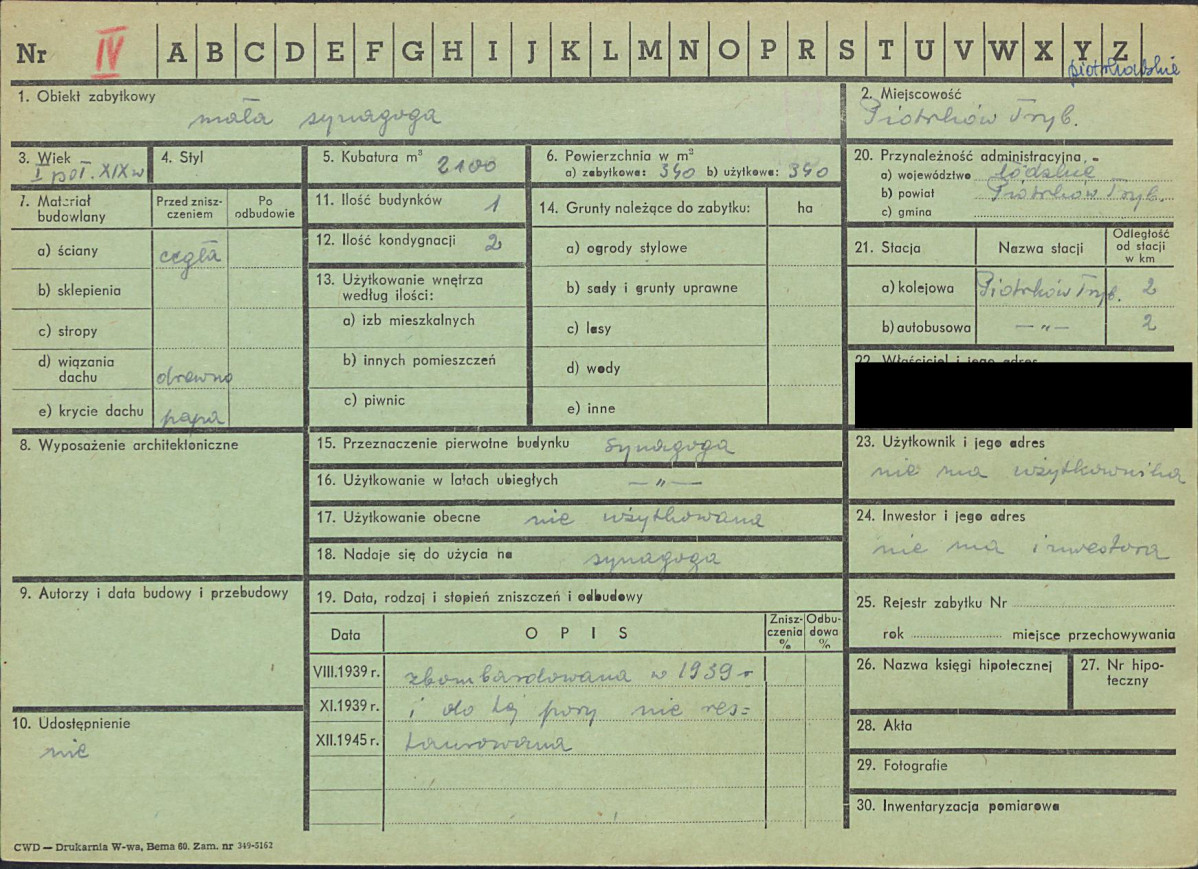 Nr IV A B C D E F G H I J K L M N O P R S T U V W X Y Z
piotrkowskie
1. Obiekt zabytkowy
mała synagoga
2. Miejscowość
Piotrków Tryb.
3. Wiek
I poł. XIX w
4. Styl
5. Kubatura m³ 2100
6. Powierzchnia w m²
a) zabytkowa: 340 b) użytkowa: 340
20. Przynależność administracyjna
a) województwo łódzkie
b) powiat Piotrków Tryb.
c) gmina
7. Materiał budowlany
Przed zniszczeniem
Po odbudowie
a) ściany cegła
b) sklepienia
c) stropy
d) wiązania dachu drewno
e) krycie dachu papa
11. Ilość budynków 1
12. Ilość kondygnacji 2
13. Użytkowanie wnętrza
według ilości:
a) izb mieszkalnych
b) innych pomieszczeń
c) piwnic
14. Grunty należące do zabytku: ha
a) ogrody stylowe
b) sady i grunty uprawne
c) lasy
d) wody
e) inne
21. Stacja Nazwa stacji Odległość od stacji w km
a) kolejowa Piotrków Tryb. 2
b) autobusowa — „ — 2
22. Właściciel i jego adres
8. Wyposażenie architektoniczne
15. Przeznaczenie pierwotne budynku synagoga
16. Użytkowanie w latach ubiegłych — „ —
17. Użytkowanie obecne nie użytkowana
18. Nadaje się do użycia na synagoga
23. Użytkownik i jego adres
nie ma użytkownika
24. Inwestor i jego adres
nie ma inwestora
9. Autorzy i data budowy i przebudowy
10. Udostępnienie
nie
19. Data, rodzaj i stopień zniszczeń i odbudowy
Data OPIS Zniszczenia % Odbudowa %
VIII.1939 r. zbombardowana w 1939 r
XI.1939 r. i do tej pory nie res=
XII.1945 r. taurowana
25. Rejestr zabytku Nr
rok miejsce przechowywania
26. Nazwa księgi hipotecznej
27. Nr hipoteczny
28. Akta
29. Fotografie
30. Inwentaryzacja pomiarowa
CWD — Drukarnia W-wa, Bema 60. Zam. nr 349-5162